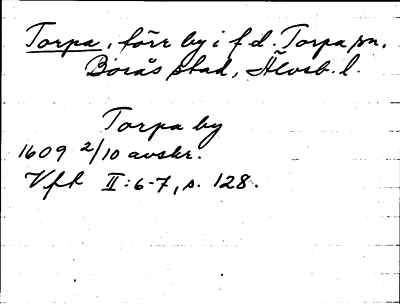 Torpa, förr by i f d. Torpa sn,
Borås stad, Älvsb. l.
Torpa by
1609 2/10 avskr.
Vft II:6-7, s. 128.